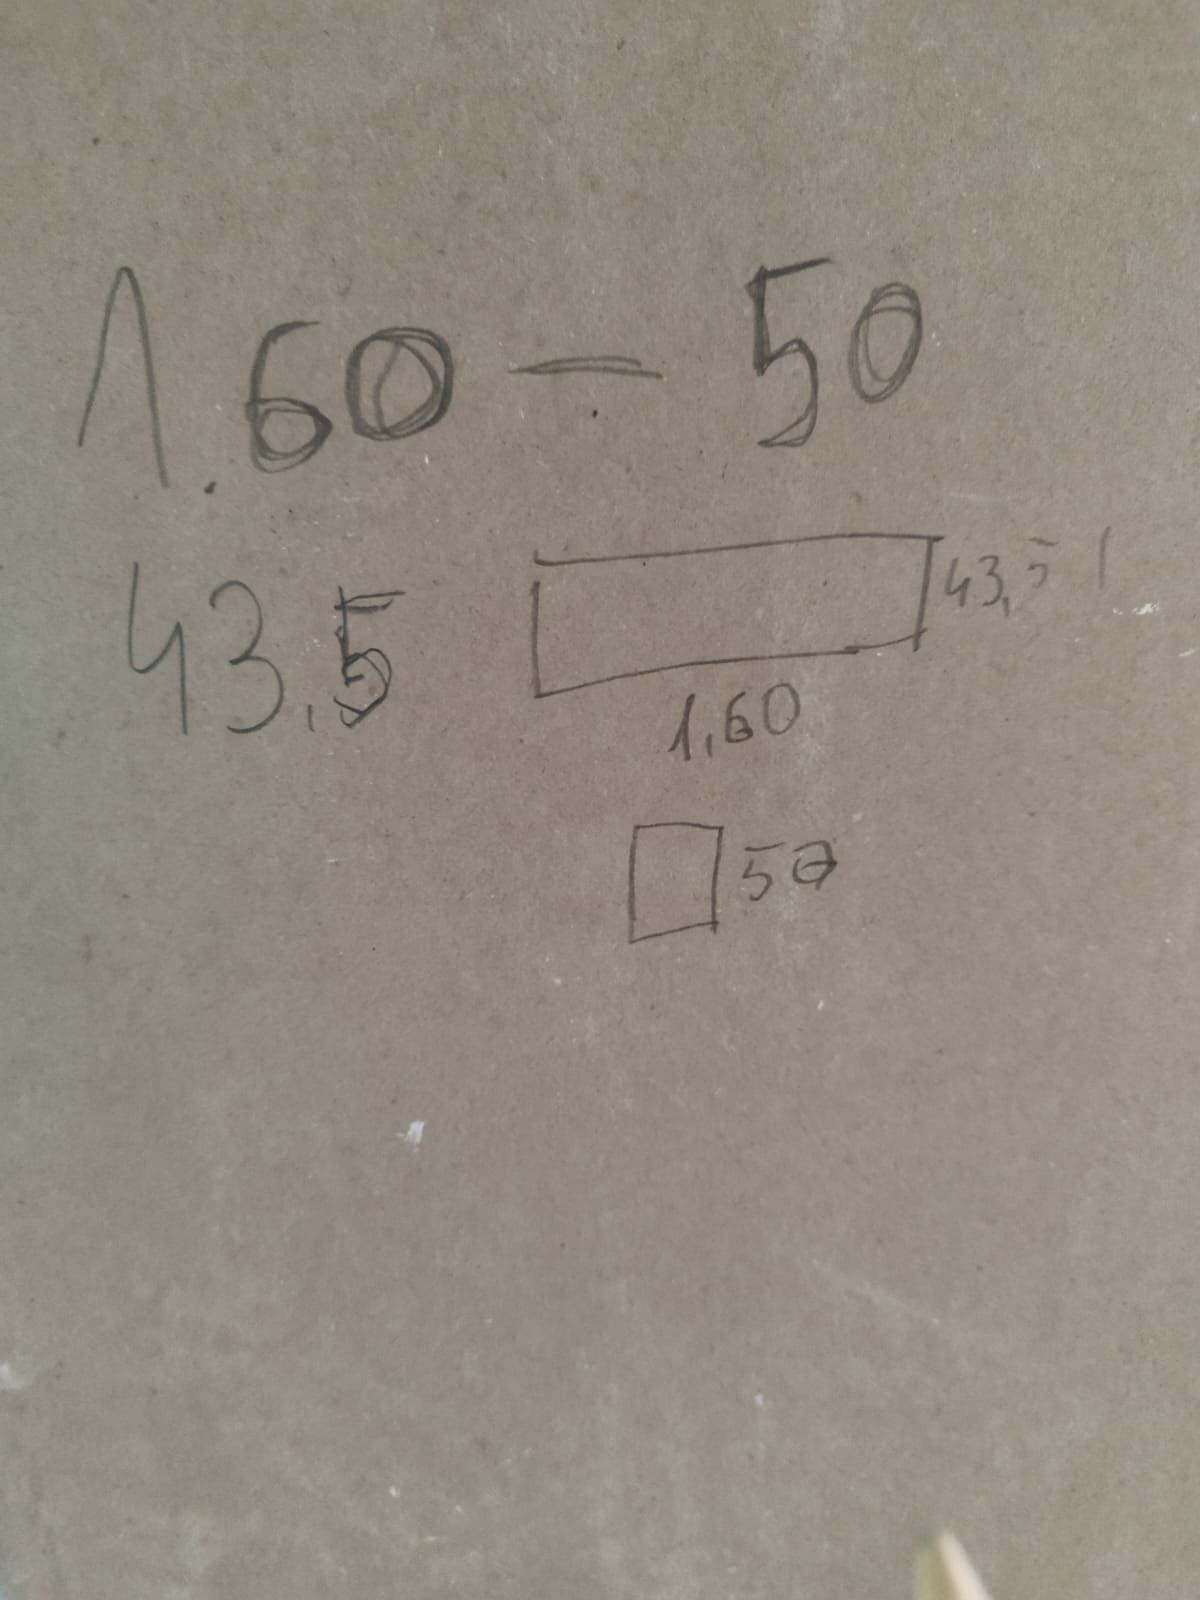 1.60 — 50
43,5
43,5
1,60
50